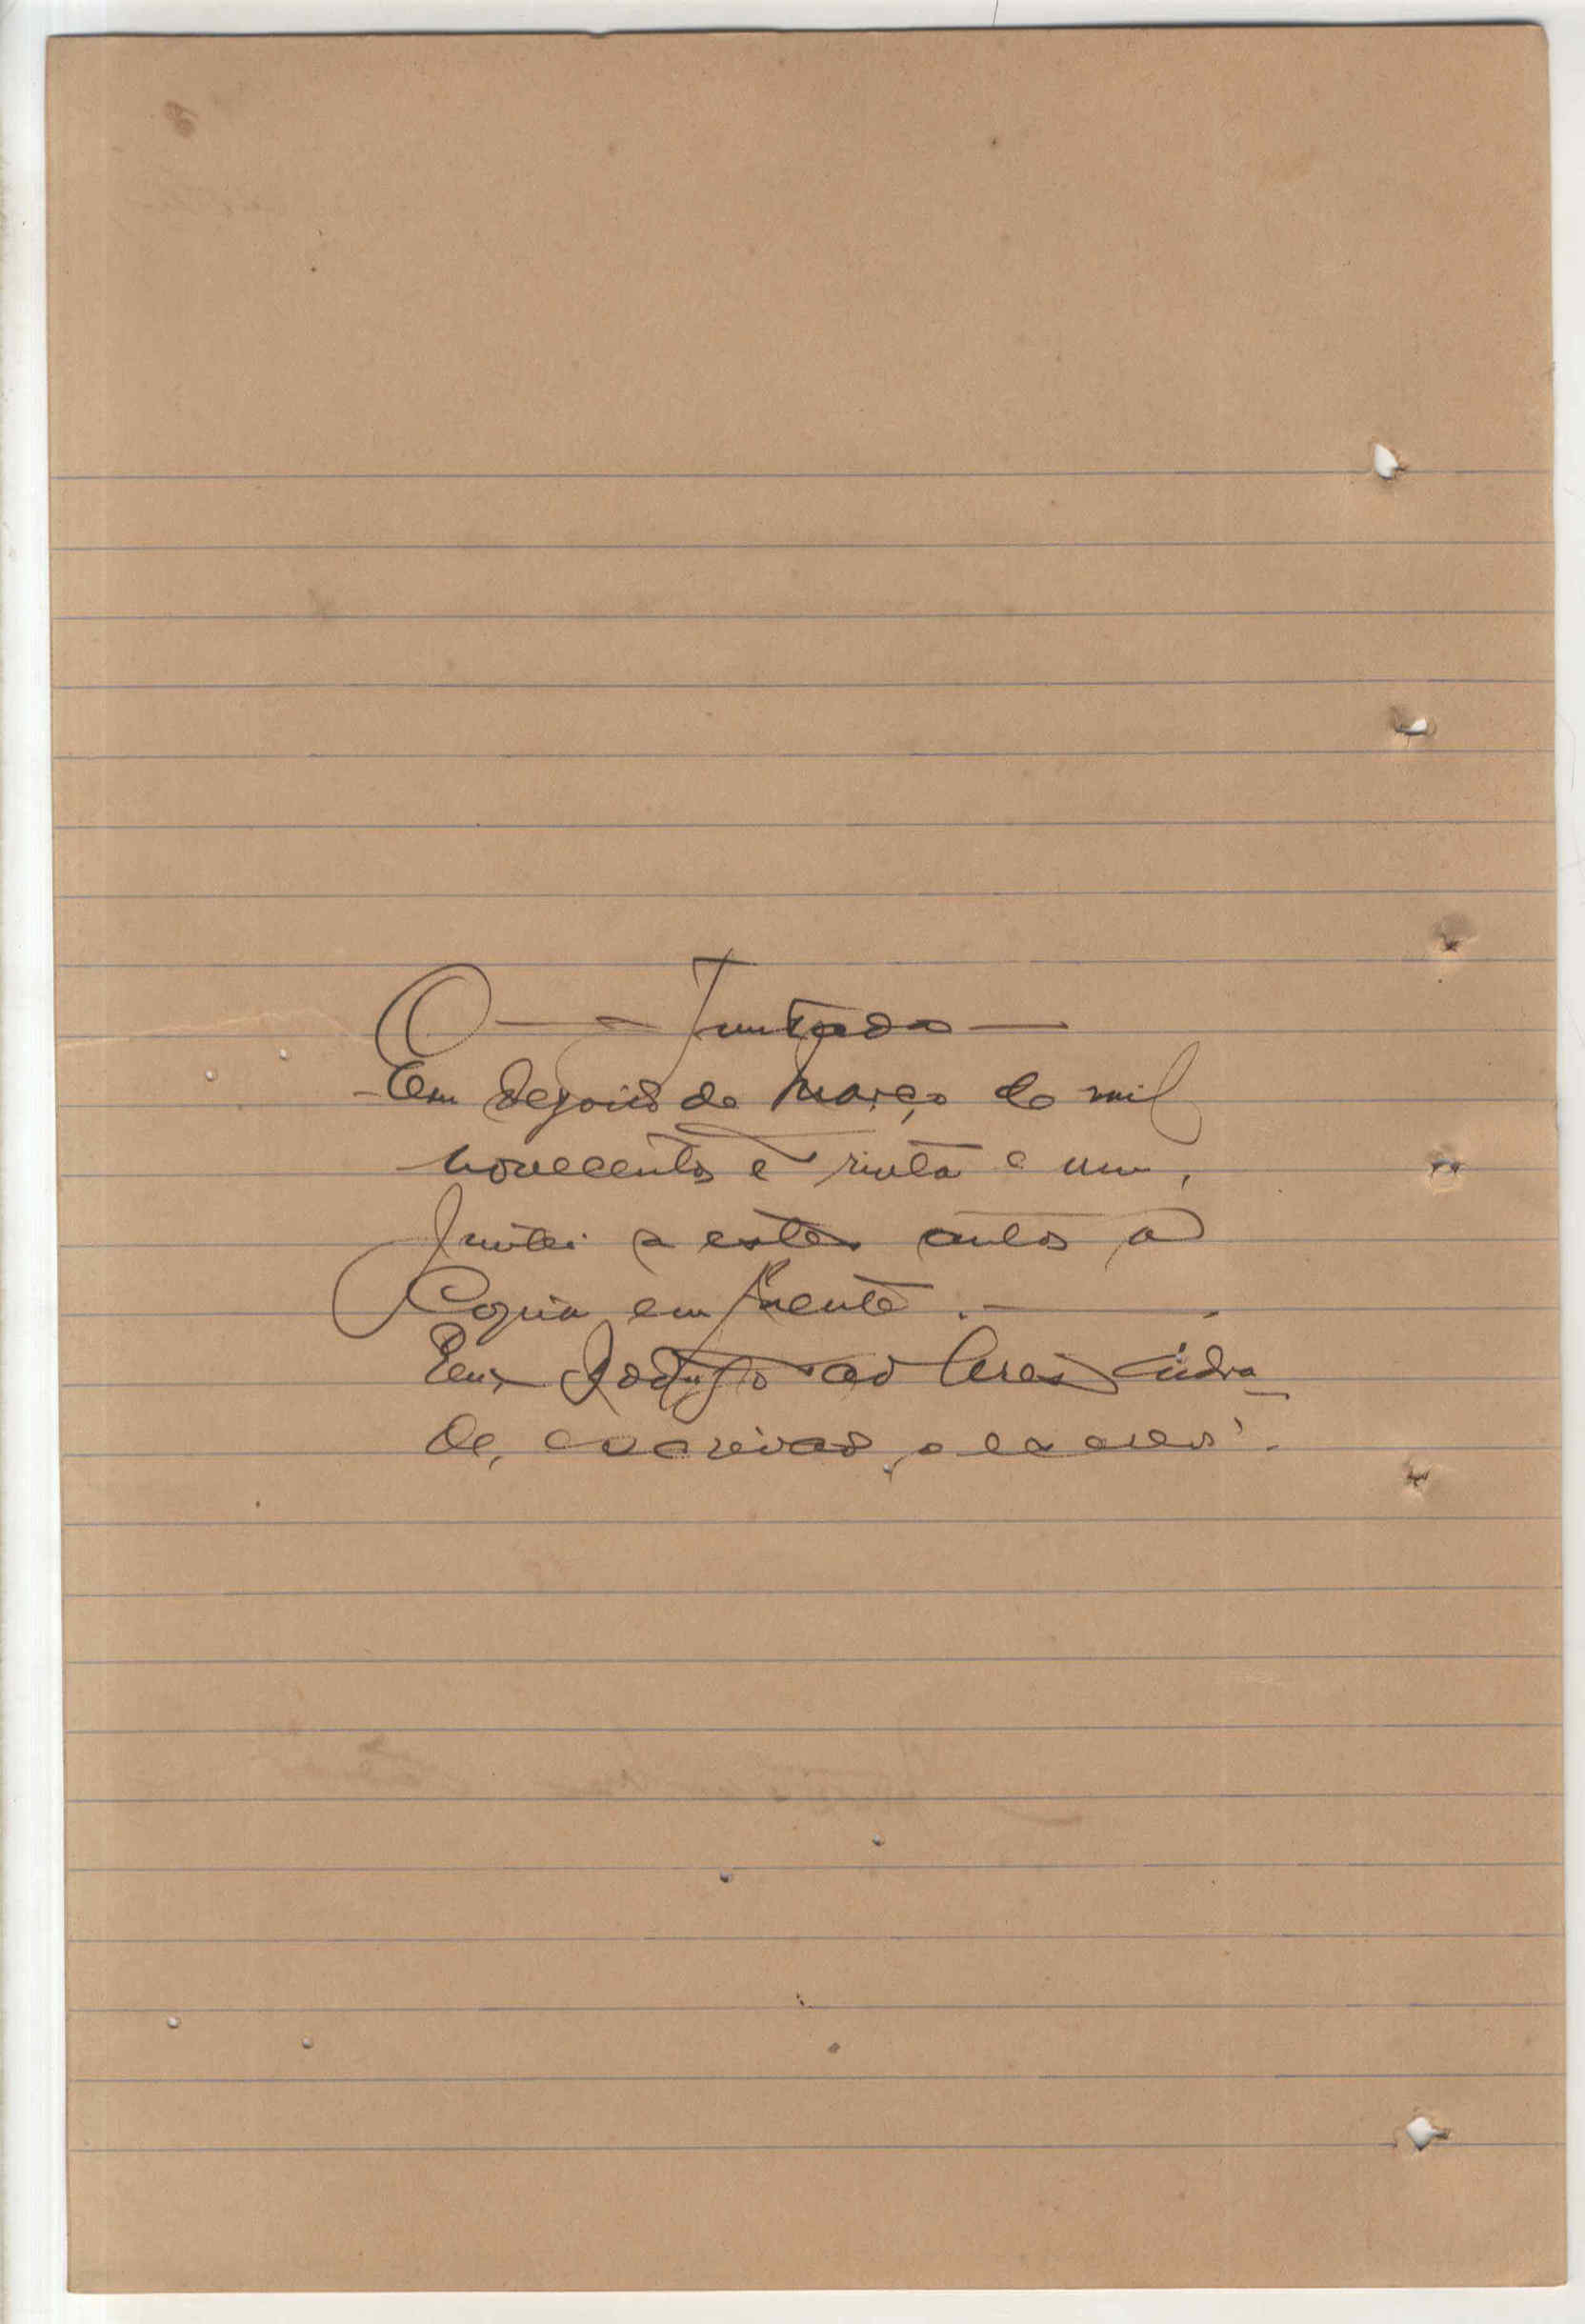 Juntada
Em de Março de mil
novecentos e trinta e um,
Juntei a estes autos a
Copia em frente.
Eu,
de, escrivão, o escrevi.